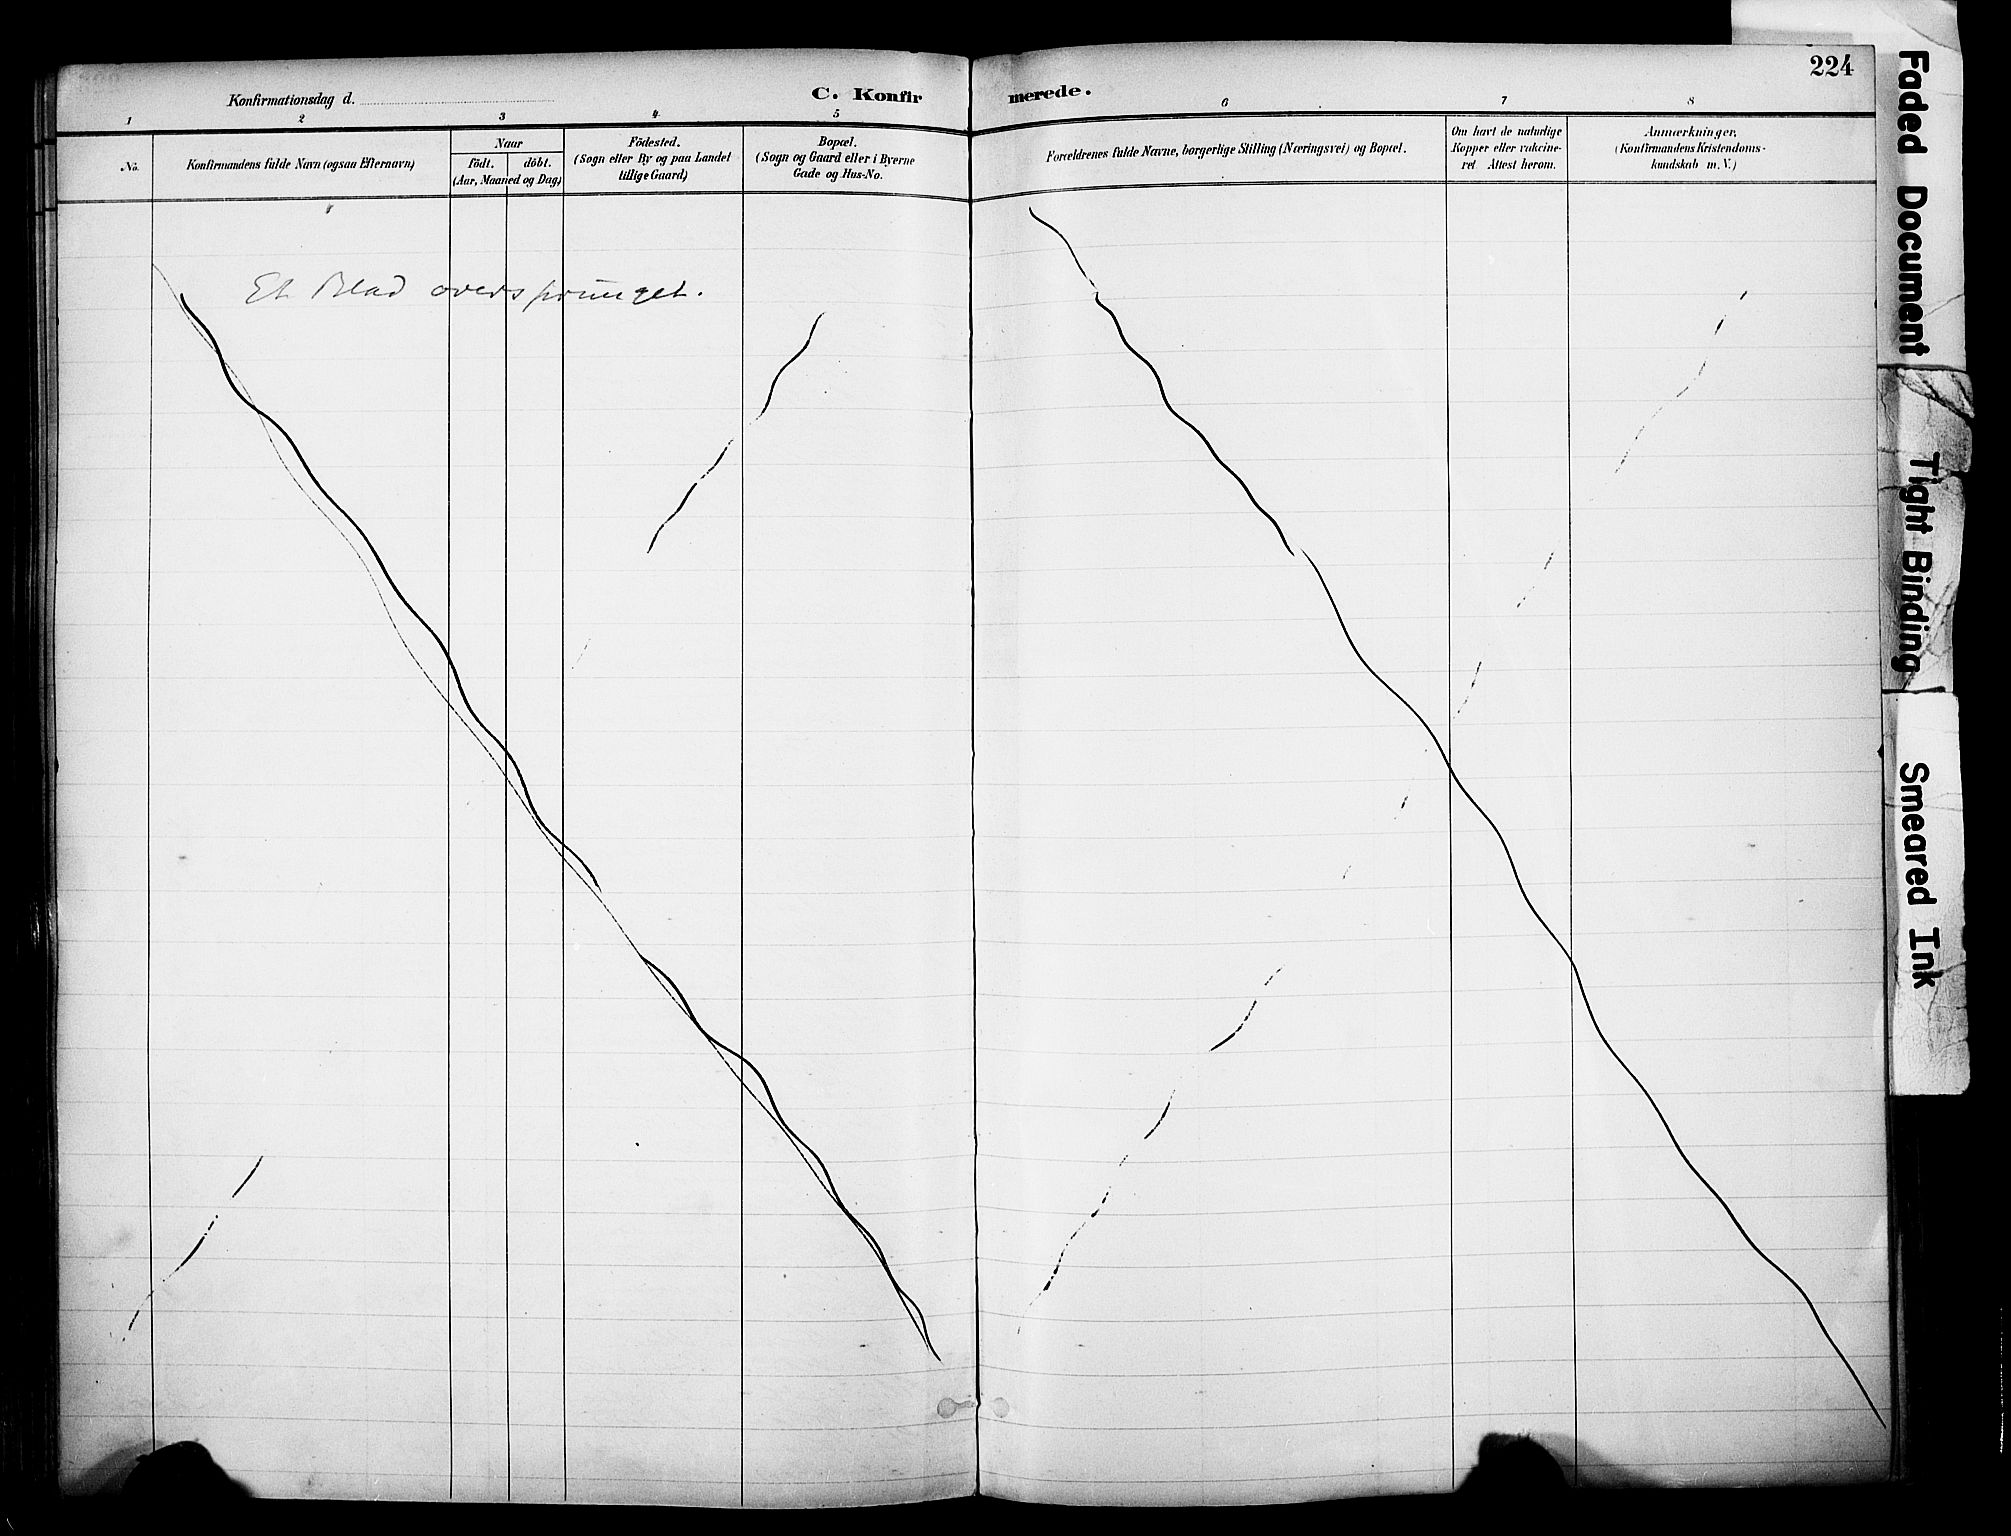 224
Konfirmationsdag d.
C. Konfirmerede.
1 2 3 4 5 6 7 8
No.
Konfirmandens fulde Navn (ogsaa Efternavn)
Naar
födt. döbt.
(Aar, Maaned og Dag)
Födested.
(Sogn eller By og paa Landet
tillige Gaard)
Bopæl.
(Sogn og Gaard eller i Byerne
Gade og Hus-No.
Forældrenes fulde Navne, borgerlige Stilling (Næringsvei) og Bopæl.
Om havt de naturlige
Kopper eller vakcine-
ret Attest herom.
Anmærkninger,
(Konfirmandens Kristendoms-
kundskab m. V.)
Et Blad oversprunget.
Faded Document
Tight Binding
Smeared Ink